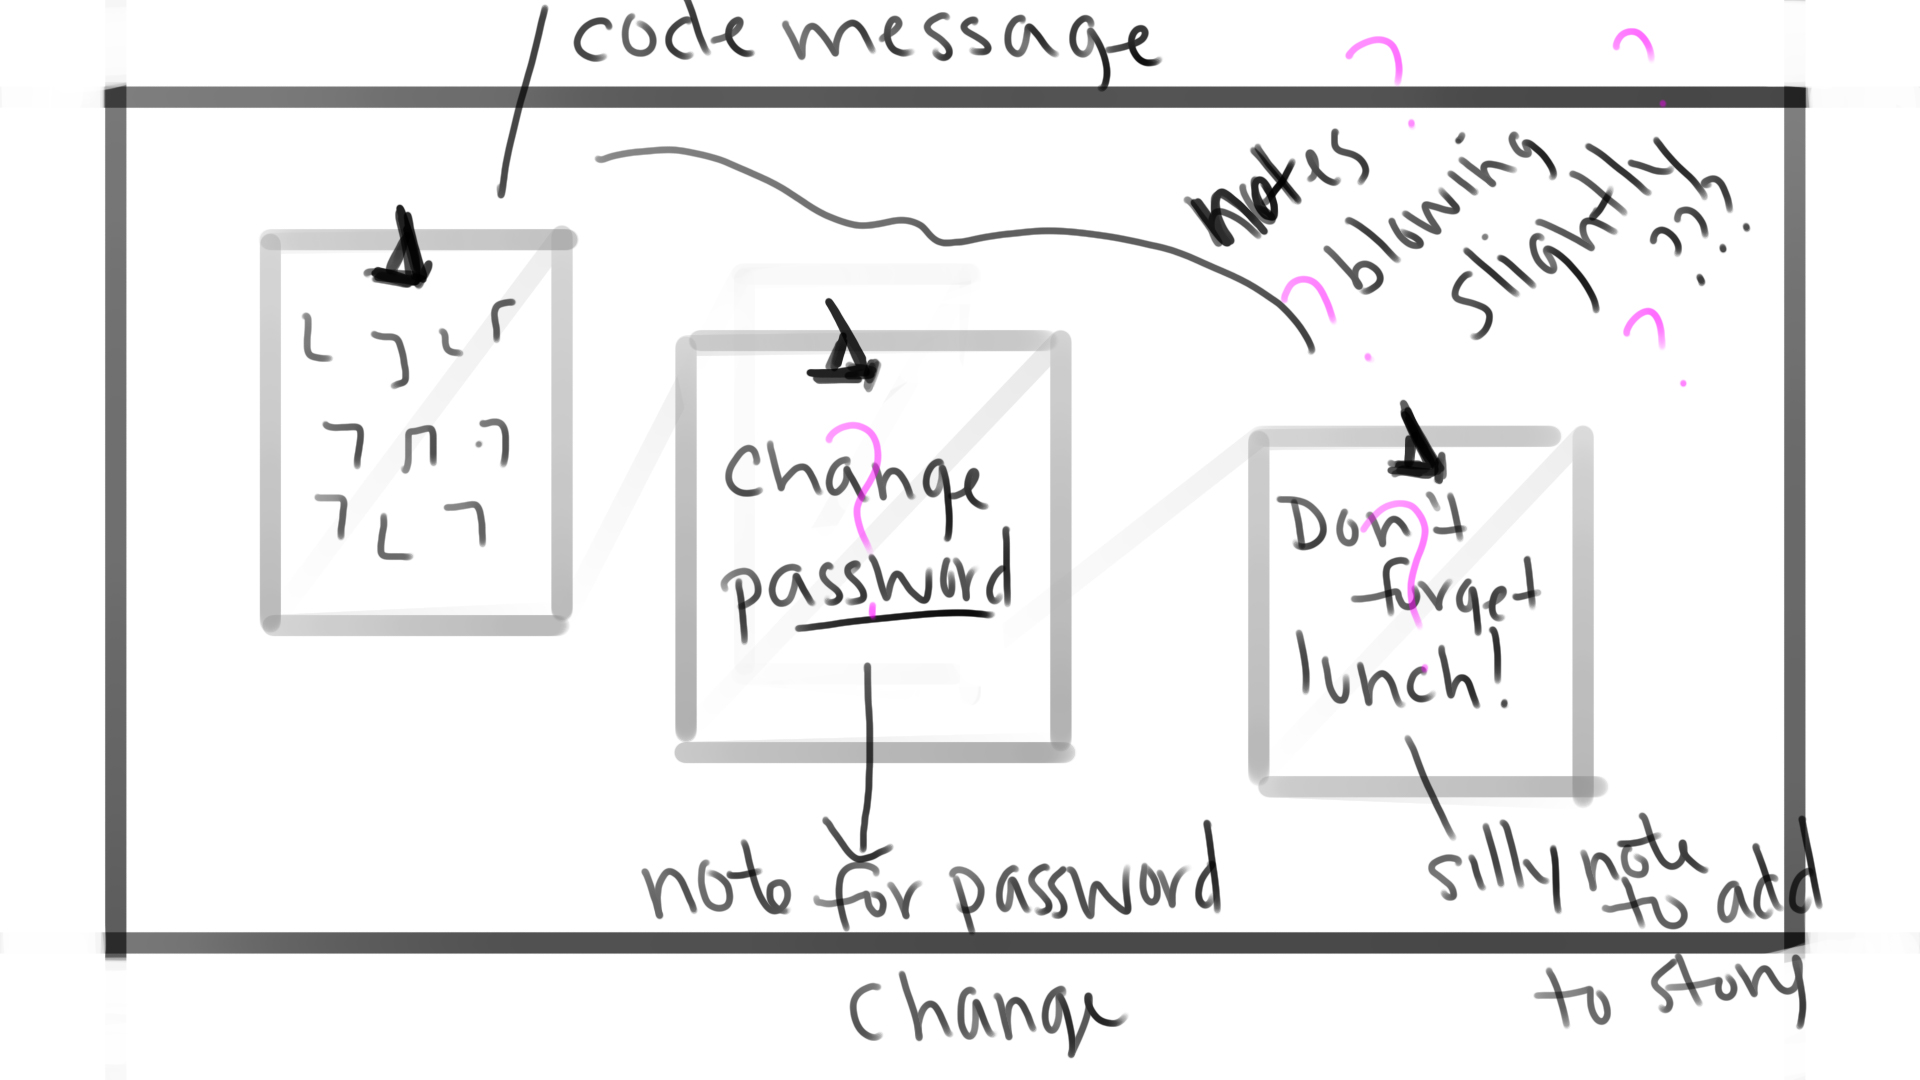 code message
notes
blowing
slightly
???
change
password
Don't
forget
lunch!
note for password
change
silly note
to add
to story